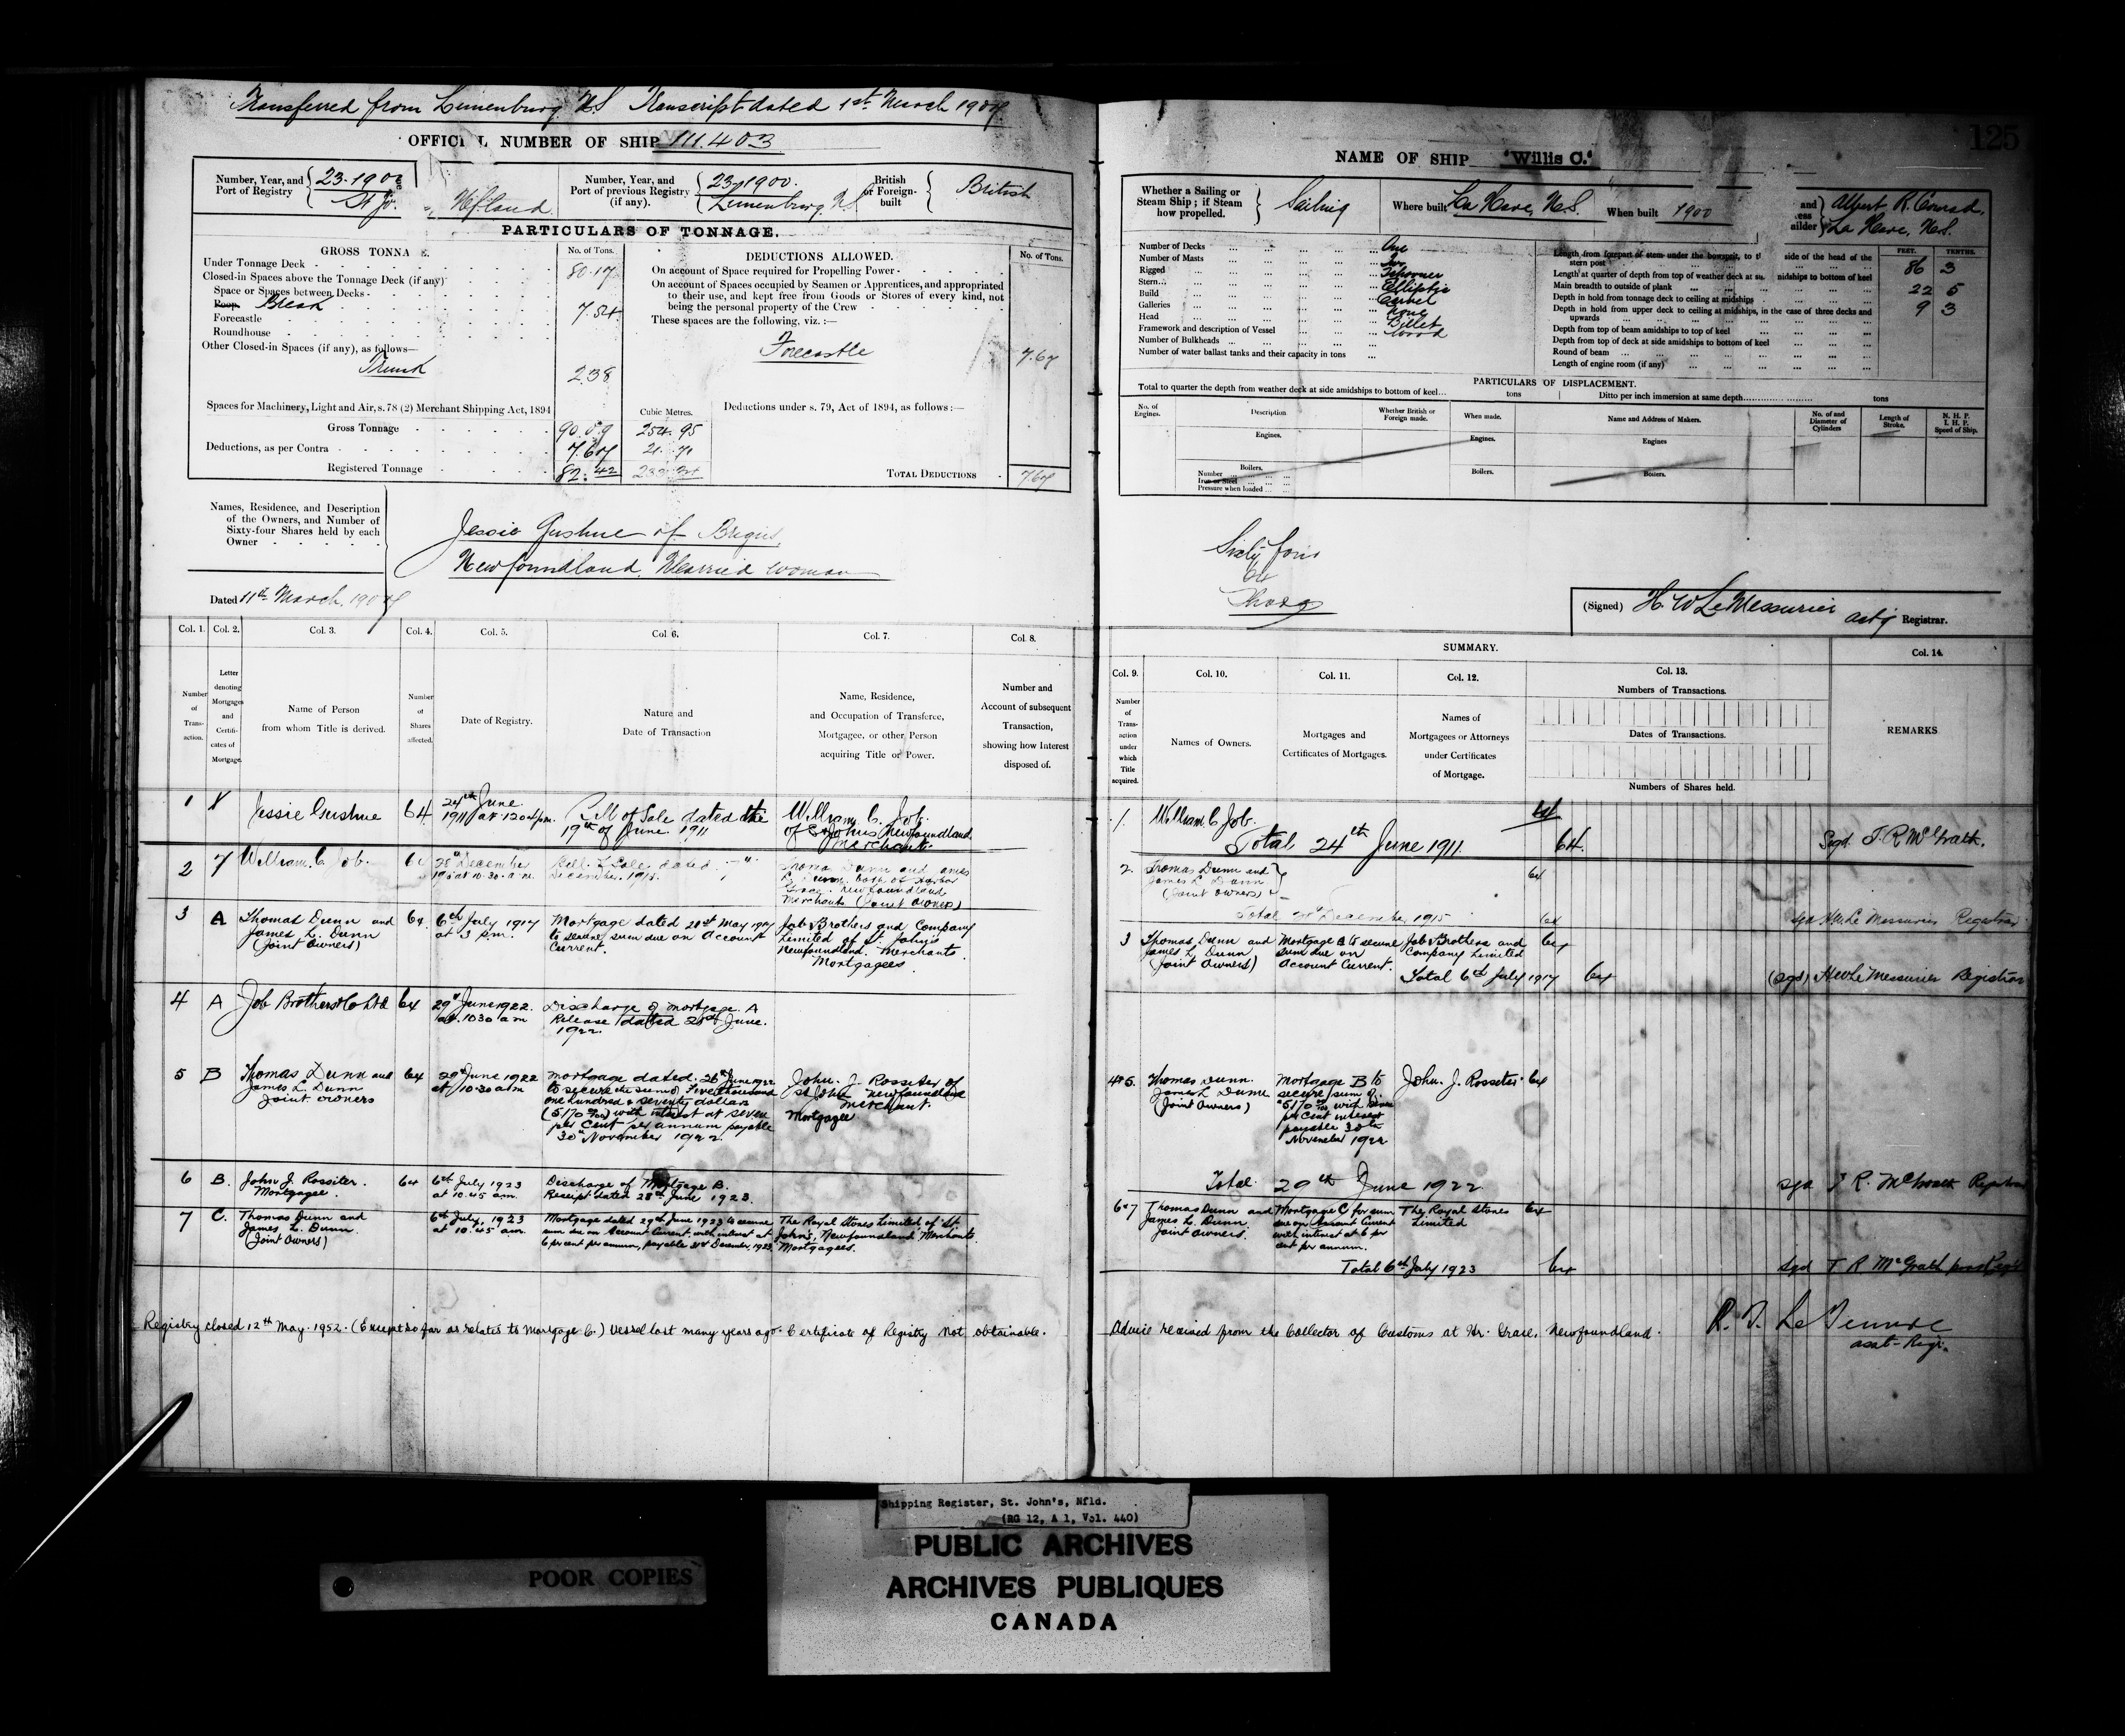 Transferred from Lunenburg N.S. Transcript dated 1st March 1907.
OFFICIAL NUMBER OF SHIP 111.403
Number, Year, and Port of Registry
St Jo. Nfland.
Number, Year, and Port of previous Registry (if any).
23-1900.
Lunenburg, N.S.
British or Foreign-built
British
PARTICULARS OF TONNAGE.
GROSS TONNA E.
No. of Tons.
Under Tonnage Deck 80.17
Closed-in Spaces above the Tonnage Deck (if any)
Space or Spaces between Decks
Poop Break 7.54
Forecastle
Roundhouse
Other Closed-in Spaces (if any), as follows—
Trunk 2.38
Spaces for Machinery, Light and Air, s. 78 (2) Merchant Shipping Act, 1894
Cubic Metres.
Gross Tonnage 90.09 254.95
Deductions, as per Contra 7.67 21.71
Registered Tonnage 82.42
DEDUCTIONS ALLOWED.
No. of Tons.
On account of Space required for Propelling Power
On account of Spaces occupied by Seamen or Apprentices, and appropriated
to their use, and kept free from Goods or Stores of every kind, not
being the personal property of the Crew
These spaces are the following, viz. :—
Forecastle 7.67
Deductions under s. 79, Act of 1894, as follows :—
TOTAL DEDUCTIONS 7.67
Names, Residence, and Description
of the Owners, and Number of
Sixty-four Shares held by each
Owner
Jessie Gushue of Brigus,
Newfoundland, Married woman
Dated 11th March, 1907
Col. 1. Col. 2. Col. 3. Col. 4. Col. 5. Col. 6. Col. 7. Col. 8.
Number of Trans-action.
Letter denoting Mortgages and Certifi-cates of Mortgage.
Name of Person
from whom Title is derived.
Number of Shares affected.
Date of Registry.
Nature and
Date of Transaction
Name, Residence,
and Occupation of Transferee,
Mortgagee, or other Person
acquiring Title or Power.
Number and
Account of subsequent
Transaction,
showing how Interest
disposed of.
1 Jessie Gushue 64 24th June 1911 at 12 04 pm. Bill of Sale dated the 19th of June 1911 William C. Job. of St Johns Newfoundland Merchant.
2 William C Job. 64 28th December 1915 at 10.30 a.m. Bill of Sale dated December 1915. Thomas Dunn and James L Dunn both of Harbor Grace Newfoundland Merchants (Joint Owners)
3 A Thomas Dunn and James L. Dunn (Joint Owners) 64 6th July 1917 at 3 p.m. Mortgage dated 21st May 1917 to secure sum due on Account Current. Job Brothers and Company Limited of St. John's Newfoundland. Merchants Mortgagees
4 A Job Brothers & Co Ltd 64 29th June 1922. at 10 30 am Discharge of mortgage A Release dated 28th June. 1922.
5 B Thomas Dunn and James L Dunn Joint owners 64 29th June 1922 at 10.30 am Mortgage dated 28th June 1922 to secure the sum of Five thousand one hundred & seventy dollars (5170 00/100) with interest at seven per cent per annum payable 30th November 1922. John. J. Rossiter of St John's Newfoundland Merchant. Mortgagee
6 B. John J. Rossiter. Mortgagee. 64 6th July 1923 at 10.45 am. Discharge of Mortgage B. Receipt dated 28th June 1923.
7 C. Thomas Dunn and James L. Dunn (Joint Owners) 6th July, 1923 at 10.45 am. Mortgage dated 29th June 1923 to secure sum due on Account Current, with interest at 6 per cent per annum, payable 31st December, 1923. The Royal Stores Limited, of St. John's, Newfoundland, Merchants Mortgagees.
Registry closed 12th May. 1952. (Except so far as relates to Mortgage C.) Vessel lost many years ago. Certificate of Registry not obtainable.
125
NAME OF SHIP "Willis C."
Whether a Sailing or Steam Ship ; if Steam how propelled.
Sailing
Where built La Have, N.S.
When built 1900
Albert R. Conrad,
La Have, N.S.
Number of Decks One
Number of Masts Two
Rigged Schooner
Stern Elliptic
Build Carvel
Galleries None
Head Billet
Framework and description of Vessel Wood
Number of Bulkheads
Number of water ballast tanks and their capacity in tons
FEET. TENTHS.
Length from forepart of stem under the bowsprit, to side of the head of the stern post 86 3
Length at quarter of depth from top of weather deck at midships to bottom of keel
Main breadth to outside of plank 22 5
Depth in hold from tonnage deck to ceiling at midships 9 3
Depth in hold from upper deck to ceiling at midships, in the case of three decks and upwards
Depth from top of beam amidships to top of keel
Depth from top of deck at side amidships to bottom of keel
Round of beam
Length of engine room (if any)
PARTICULARS OF DISPLACEMENT.
Total to quarter the depth from weather deck at side amidships to bottom of keel tons Ditto per inch immersion at same depth tons
No. of Engines.
Description
Whether British or Foreign made.
When made.
Name and Address of Makers.
No. of and Diameter of Cylinders
Length of Stroke.
N. H. P. I. H. P. Speed of Ship.
Engines. Engines. Engines
Boilers. Boilers. Boilers.
Number
Iron or Steel
Pressure when loaded
Sixty four
64
Shares
(Signed) H. W LeMessurier actg Registrar.
SUMMARY.
Col. 9. Col. 10. Col. 11. Col. 12. Col. 13. Col. 14.
Number of Trans-action under which Title acquired.
Names of Owners.
Mortgages and
Certificates of Mortgages.
Names of
Mortgagees or Attorneys
under Certificates
of Mortgage.
Numbers of Transactions.
Dates of Transactions.
Numbers of Shares held.
REMARKS
1. William C Job. 64
Total 24th June 1911 64. Sgd. T. R McGrath.
2. Thomas Dunn and James L Dunn (Joint Owners) 64
Total 28th December 1915 64 sgd H.W. Le Messurier Registrar
3 Thomas Dunn and James L. Dunn (Joint Owners) Mortgage A to secure sum due on Account Current. Job Brothers and Company Limited 64
Total 6th July 1917 64 (sgd) H W Le Messurier Registrar
4&5. Thomas Dunn. James L Dunn (Joint Owners) Mortgage B to secure sum of 5170 00/100 with seven per cent interest payable 30th November 1922 John. J. Rossiter 64
Total 29th June 1922 sgd T R. McGrath Registrar
6&7 Thomas Dunn and James L. Dunn Joint owners. Mortgage C for sum due on Account Current with interest at 6 per cent per annum. The Royal Stores Limited 64
Total 6th July 1923 64 sgd T R McGrath
Advice received from the Collector of Customs at Hr. Grace, Newfoundland.
asst-Regr.
Shipping Register, St. John's, Nfld.
(RG 12, A 1, Vol. 440)
PUBLIC ARCHIVES
ARCHIVES PUBLIQUES
CANADA
POOR COPIES